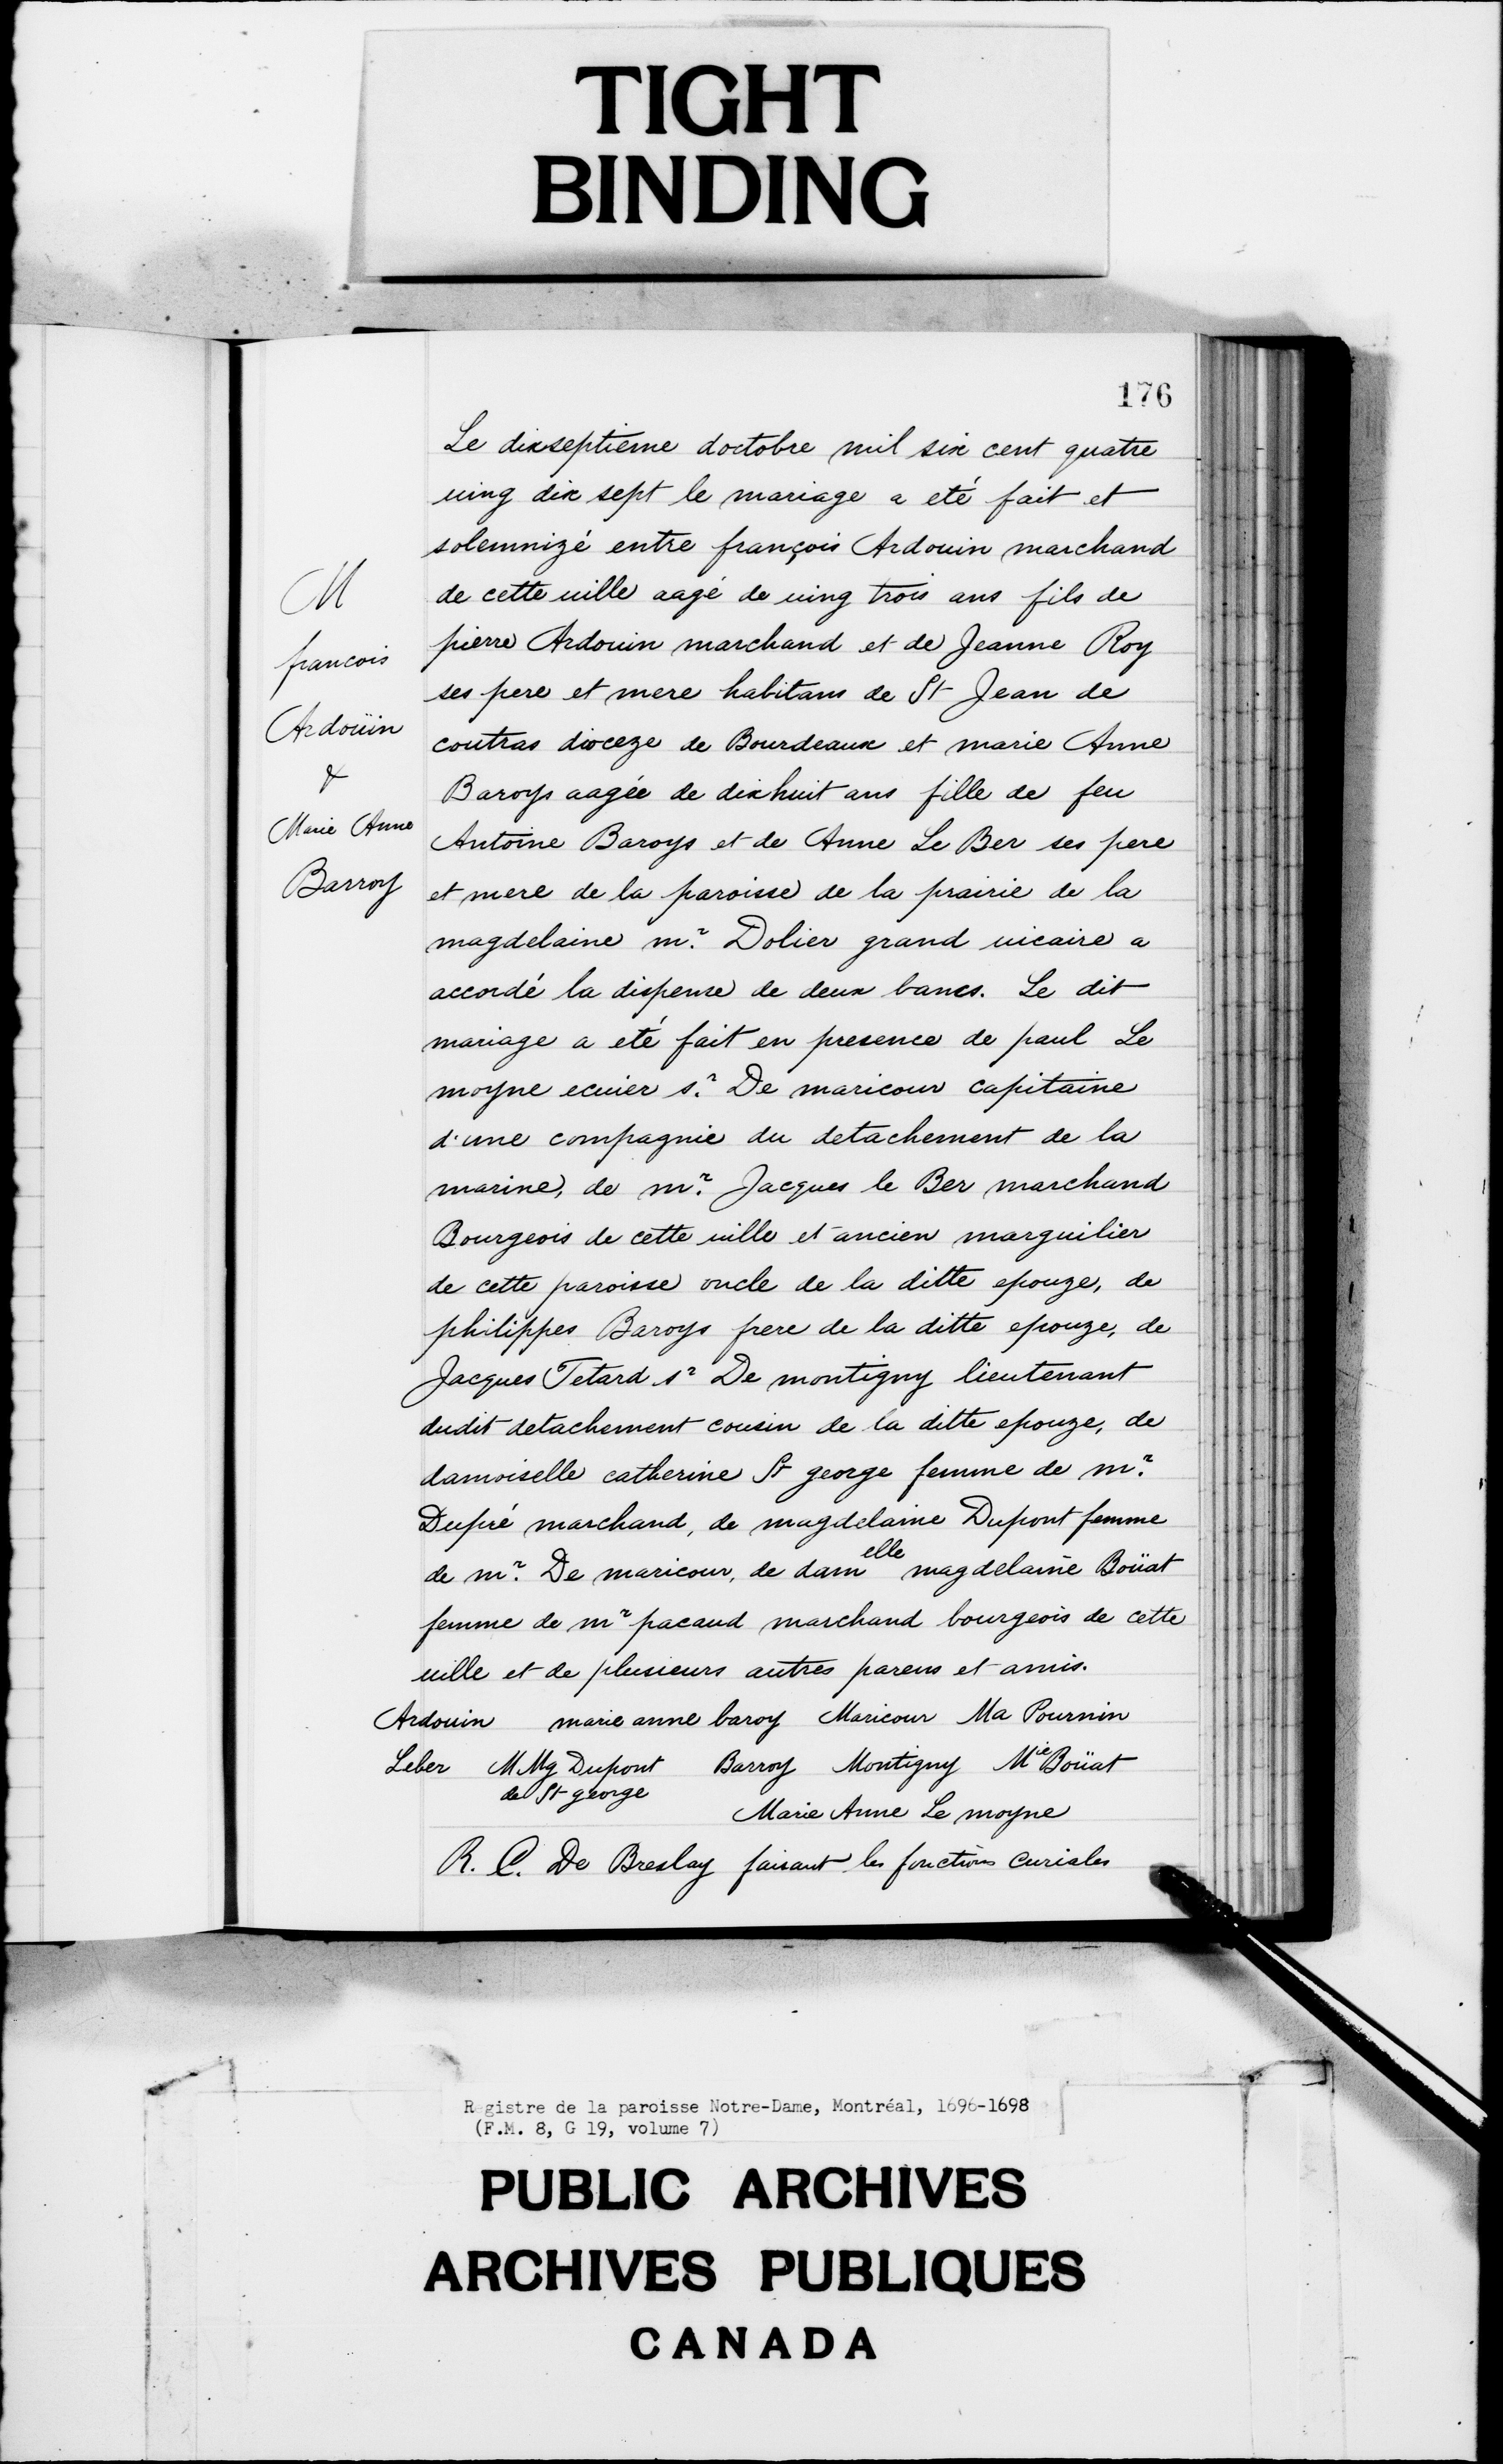 TIGHT
BINDING
176
Le dixseptieme doctobre mil six cent quatre
uing dix sept le mariage a eté fait et
solemnizé entre françois Ardouin marchand
de cette uille aagé de uing trois ans fils de
pierre Ardouin marchand et de Jeanne Roy
ses pere et mere habitans de St Jean de
coutras dioceze de Bourdeaux et marie Anne
Baroys aagée de dixhuit ans fille de feu
Antoine Baroys et de Anne Le Ber ses pere
et mere de la paroisse de la prairie de la
magdelaine mr. Dolier grand uicaire a
accordé la dispense de deux bancs. Le dit
mariage a eté fait en presence de paul Le
moyne ecuier sr. De maricour capitaine
d'une compagnie du detachement de la
marine, de mr. Jacques le Ber marchand
Bourgeois de cette uille et ancien marguilier
de cette paroisse oncle de la ditte epouze, de
philippes Baroys frere de la ditte epouze, de
Jacques Tetard sr De montigny lieutenant
dudit detachement cousin de la ditte epouze, de
damoiselle catherine St george femme de mr.
Dupré marchand, de magdelaine Dupont femme
de mr. De maricour, de damelle magdelaine Boüat
femme de mr pacaud marchand bourgeois de cette
uille et de plusieurs autres parens et amis.
Ardouin marie anne baroy Maricour Ma Pournin
Leber M Mg Dupont Barroy Montigny Mie Boüat
de St george
Marie Anne Le moyne
R. C. De Breslay faisant les fonctions curiales
M
francois
Ardoüin
&
Marie Anne
Barroy
Registre de la paroisse Notre-Dame, Montréal, 1696-1698
(F.M. 8, G 19, volume 7)
PUBLIC ARCHIVES
ARCHIVES PUBLIQUES
CANADA